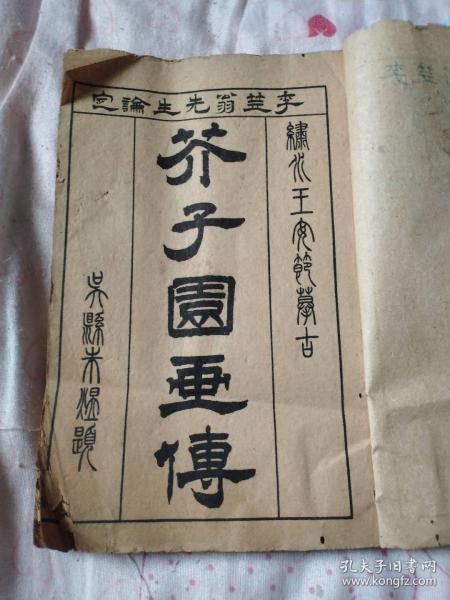 李笠翁先生論定
繡水王安節摹古
芥子園畫傳
吳縣朱湛題
孔夫子旧书网
www.kongfz.com